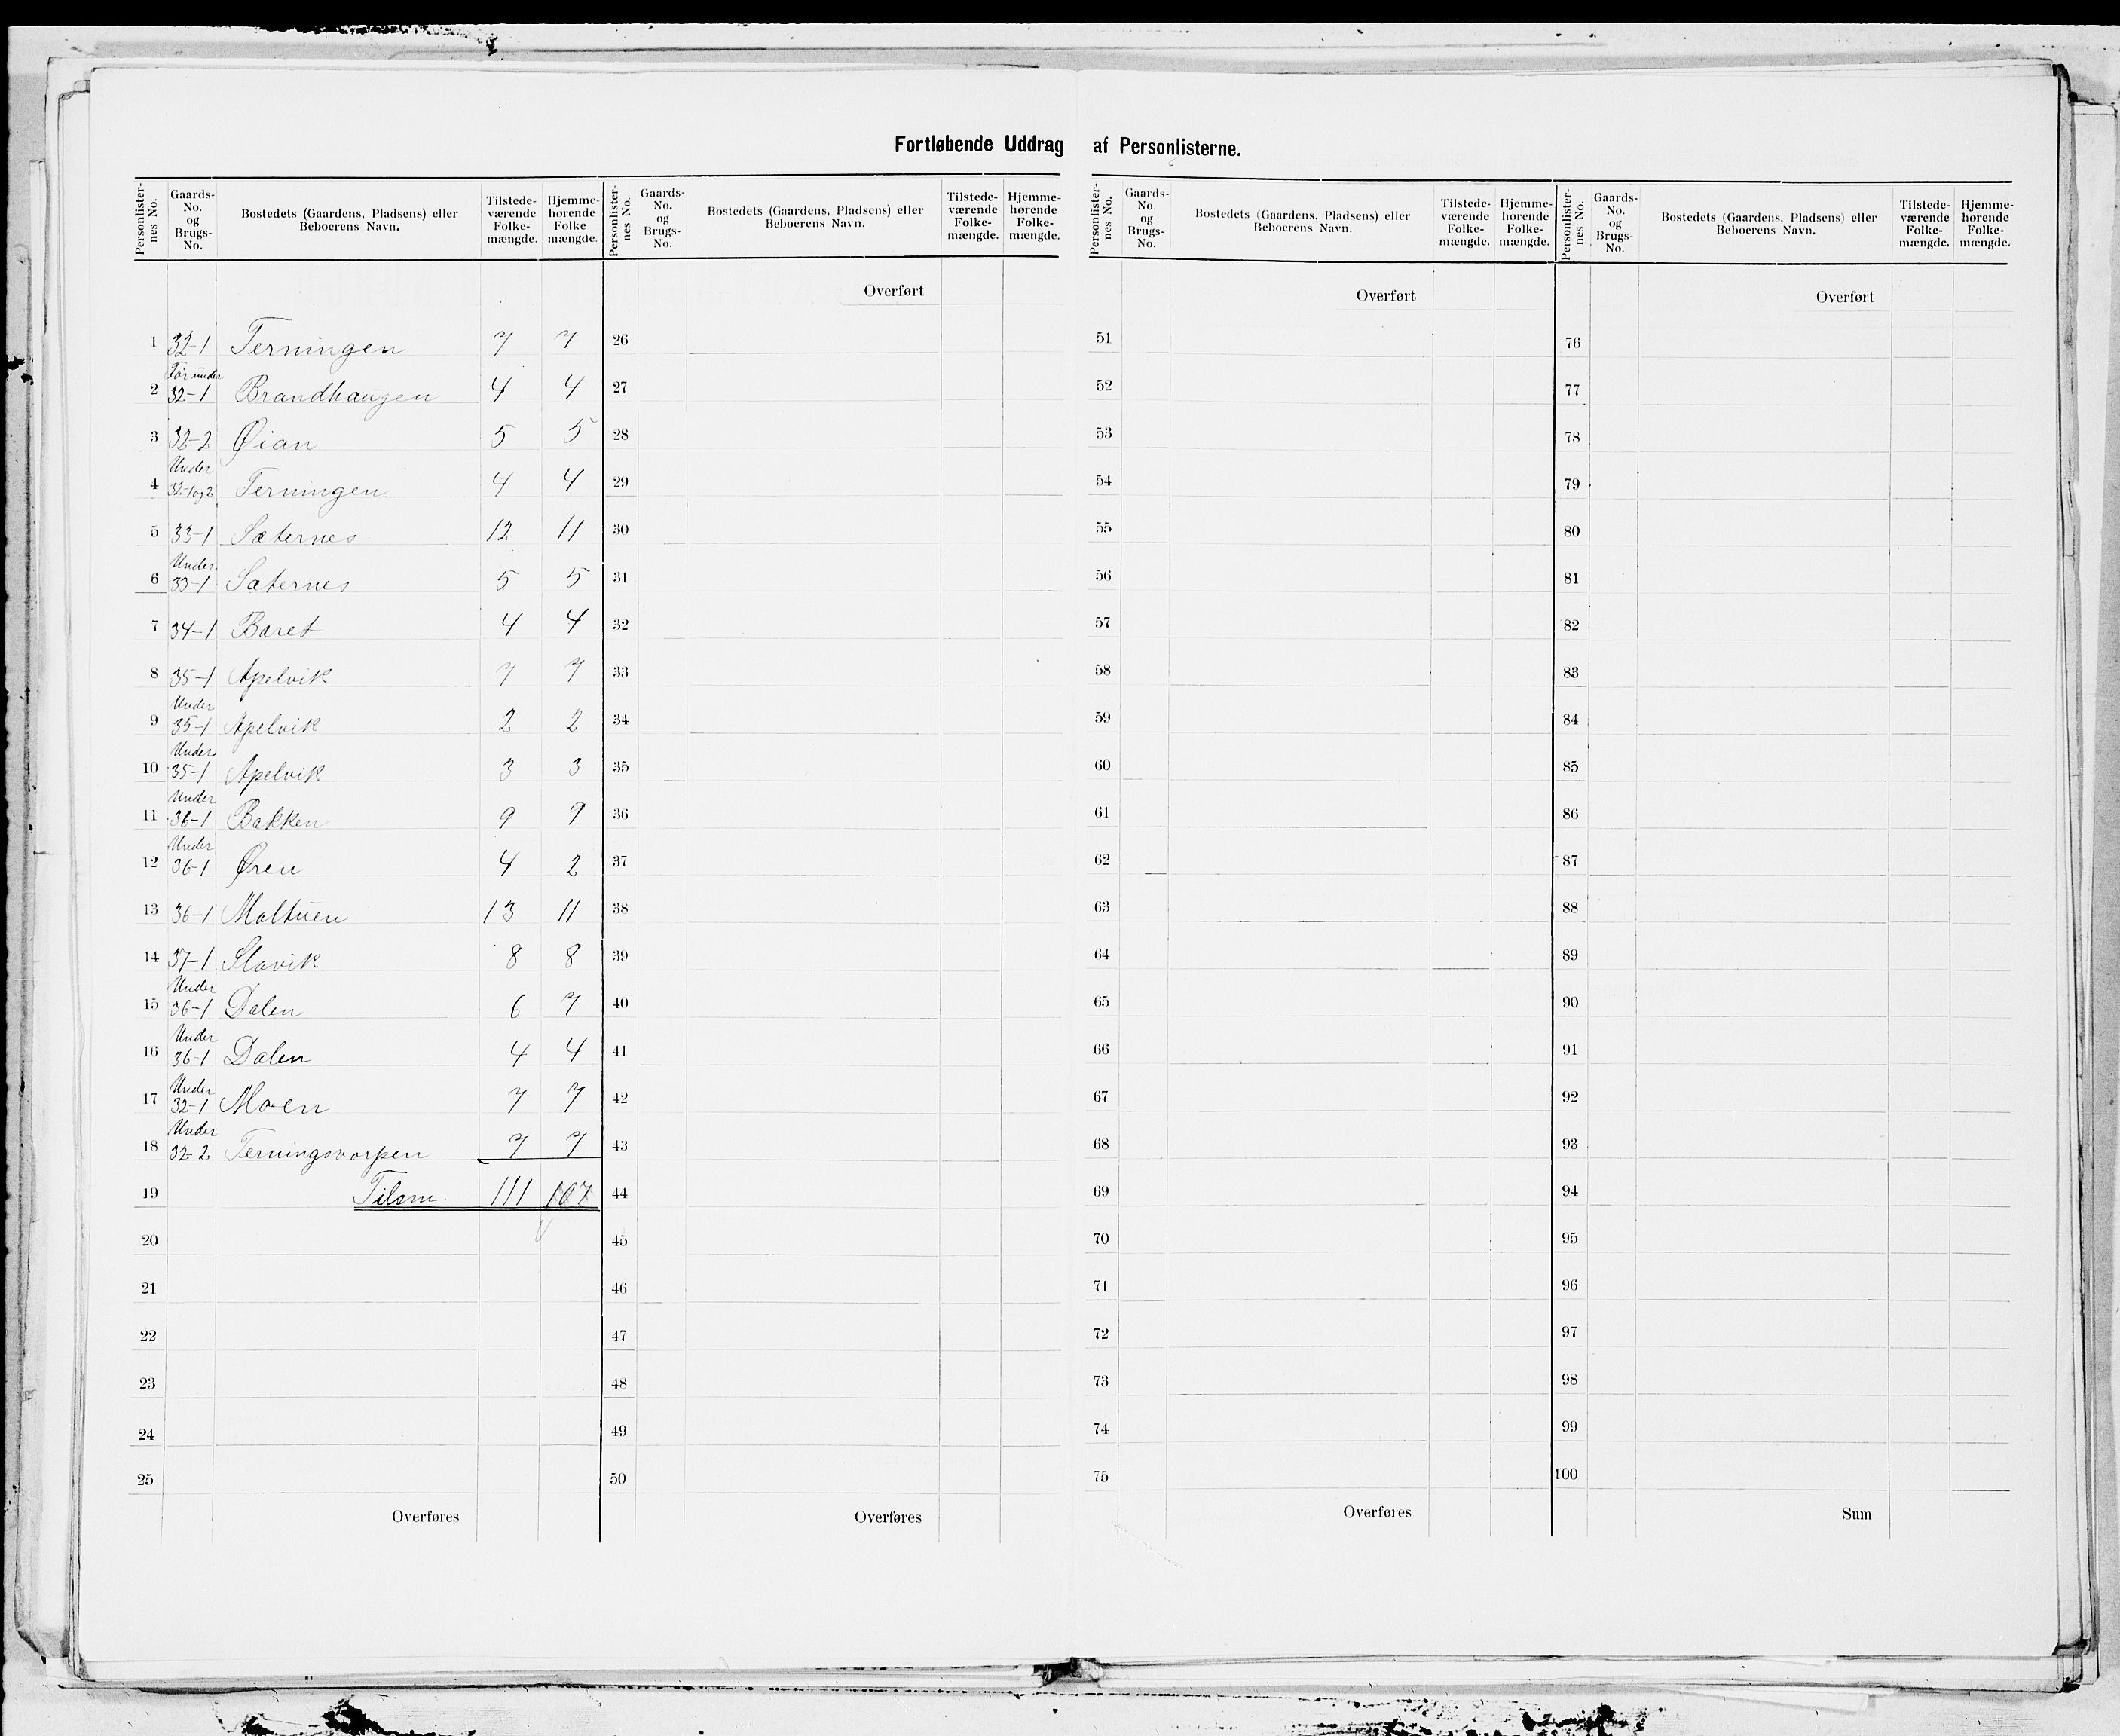 Fortløbende Uddrag af Personlisterne.
Personlister-nes No. Gaards-No. og Brugs-No. Bostedets (Gaardens, Pladsens) eller Beboerens Navn. Tilstede-værende Folke-mængde. Hjemme-hørende Folke mængde.
Personlister-nes No. Gaards-No. og Brugs-No. Bostedets (Gaardens, Pladsens) eller Beboerens Navn. Tilstede-værende Folke-mængde. Hjemme-hørende Folke-mængde.
Personlister-nes No. Gaards-No. og Brugs-No. Bostedets (Gaardens, Pladsens) eller Beboerens Navn. Tilstede-værende Folke-mængde. Hjemme-hørende Folke-mængde.
Personlister-nes No. Gaards-No. og Brugs-No. Bostedets (Gaardens, Pladsens) eller Beboerens Navn. Tilstede-værende Folke-mængde. Hjemme-hørende Folke-mængde.
Overført Overført Overført
1 32-1 Terningen 7 7 26 51 76
2 under 32-1 Brandhaugen 4 4 27 52 77
3 32-2 Øian 5 5 28 53 78
4 Under 32-1og2 Terningen 4 4 29 54 79
5 33-1 Sæternes 12 11 30 55 80
6 Under 33-1 Sæternes 5 5 31 56 81
7 34-1 Baret 4 4 32 57 82
8 35-1 Apelvik 7 7 33 58 83
9 Under 35-1 Apelvik 2 2 34 59 84
10 Under 35-1 Apelvik 3 3 35 60 85
11 Under 36-1 Bakken 9 9 36 61 86
12 Under 36-1 Øren 4 2 37 62 87
13 36-1 Moltuen 13 11 38 63 88
14 37-1 Slavik 8 8 39 64 89
15 Under 36-1 Dalen 6 7 40 65 90
16 Under 36-1 Dalen 4 4 41 66 91
17 Under 32-1 Moen 7 7 42 67 92
18 Under 32-2 Terningsvorpen 7 7 43 68 93
19 Tilsm. 111 107 44 69 94
20 45 70 95
21 46 71 96
22 47 72 97
23 48 73 98
24 49 74 99
25 50 75 100
Overføres Overføres Overføres Sum